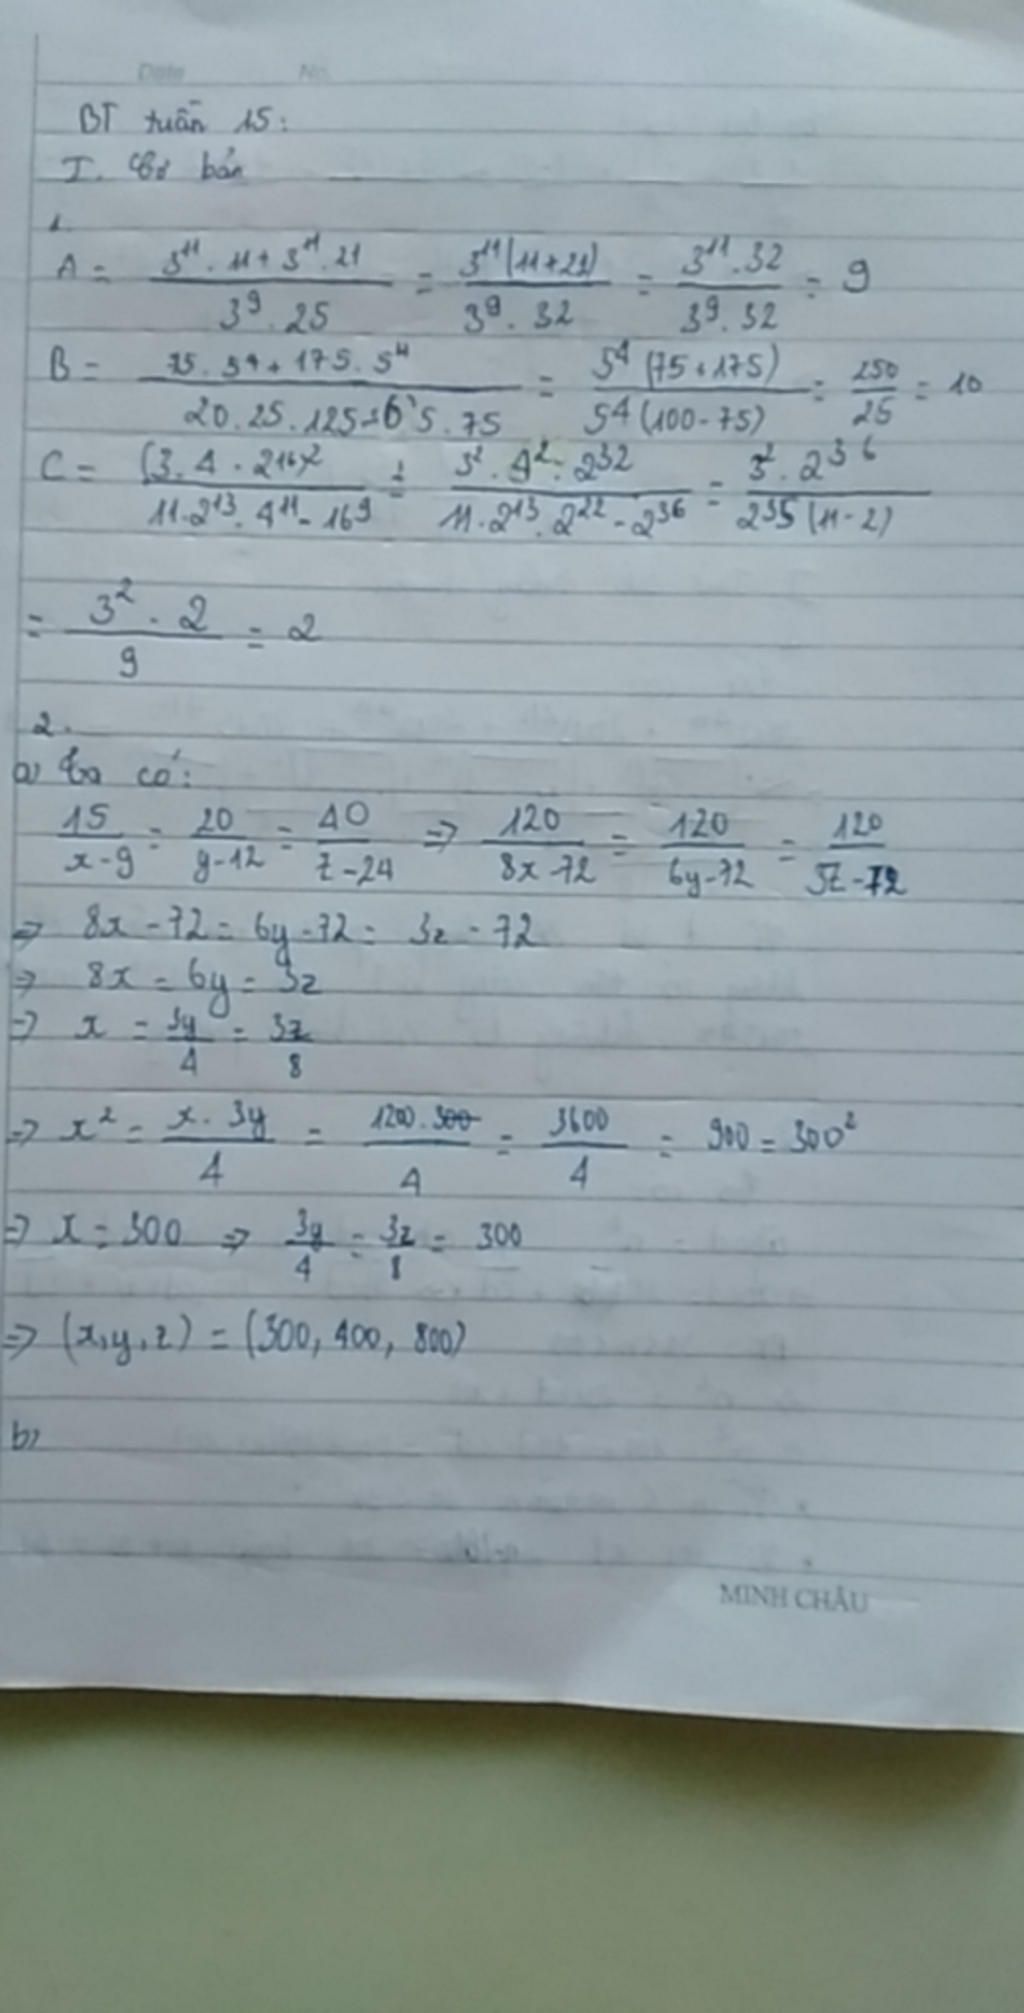 Date No.
BT tuần 15:
I. Cơ bản
1.
A = (3^11 . 11 + 3^11 . 21) / (3^9 . 25) = 3^11 (11 + 21) / (3^9 . 32) = (3^11 . 32) / (3^9 . 32) = 9
B = (75 . 5^4 + 175 . 5^4) / (20 . 25 . 125 - 6 5 . 75) = 5^4 (75 + 175) / 5^4 (100 - 75) = 250 / 25 = 10
C = (3 . 4 . 2^16)^2 / (11 . 2^13 . 4^11 - 16^9) = (3^2 . 4^2 . 2^32) / (11 . 2^13 . 2^22 - 2^36) = (3^2 . 2^36) / 2^35 (11 - 2)
= (3^2 . 2) / 9 = 2
2.
a) Ta có:
15 / (x - 9) = 20 / (y - 12) = 40 / (z - 24) => 120 / (8x - 72) = 120 / (6y - 72) = 120 / (3z - 72)
=> 8x - 72 = 6y - 72 = 3z - 72
=> 8x = 6y = 3z
=> x = 3y / 4 = 3z / 8
=> x^2 = (x . 3y) / 4 = (1200 . 300) / 4 = 3600 / 4 = 900 = 300^2
=> x = 300 => 3y / 4 = 3z / 8 = 300
=> (x, y, z) = (300, 400, 800)
b)
MINH CHÂU